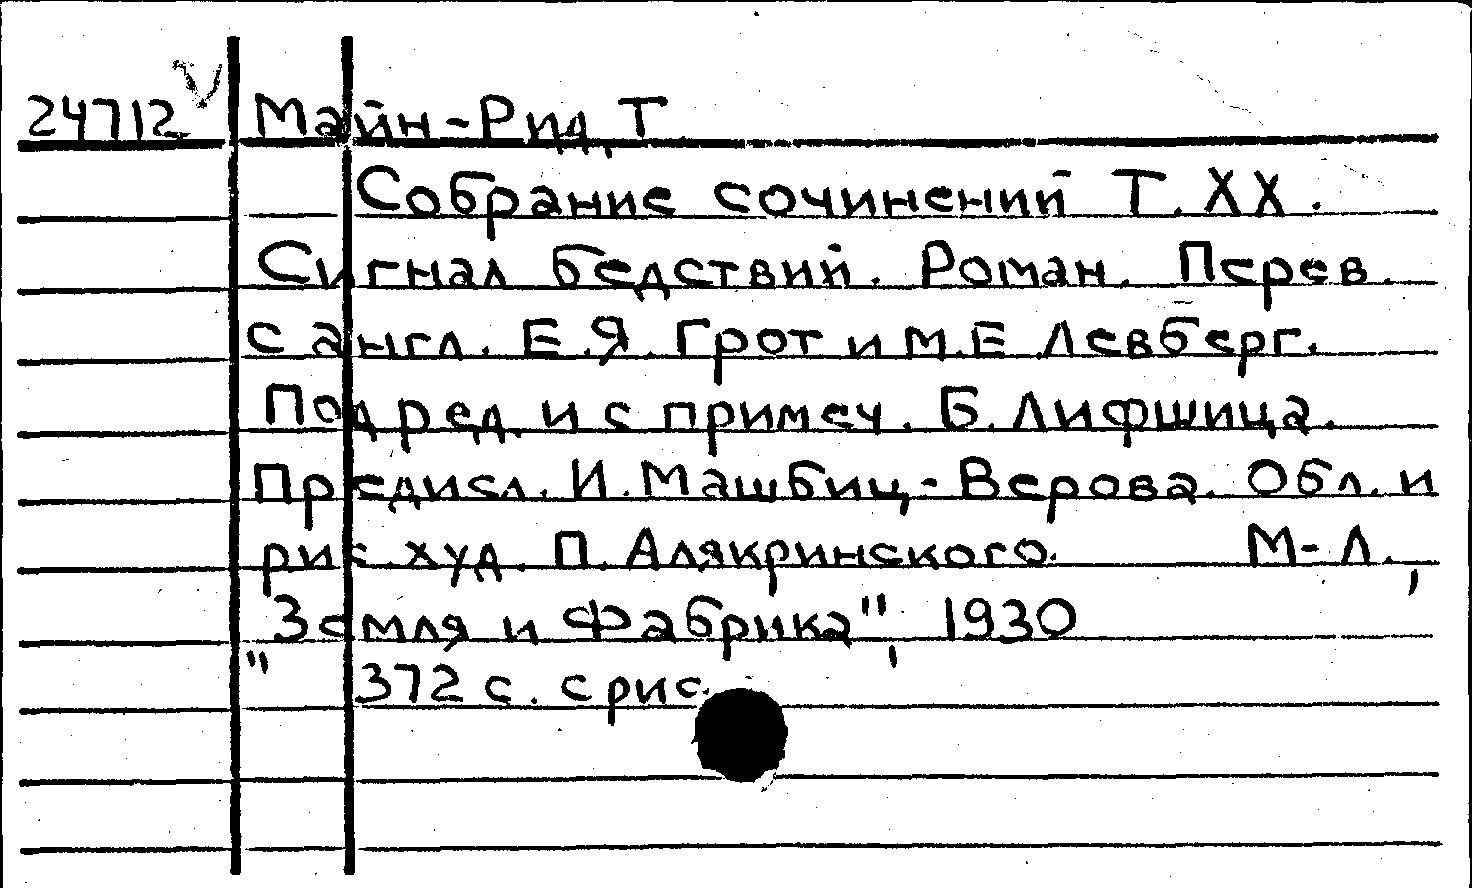 24712 Майн-Рид, Т.
Собрание сочинений Т. XX.
Сигнал бедствий. Роман. Перев.
с англ. Е.Я. Грот и М.Е. Левберг.
Под ред. и с примеч. Б. Лифшица.
Предисл. И. Машбиц-Верова. Обл. и
рис. худ. П. Алякринского. М-Л.,
"Земля и Фабрика", 1930
372 с. с рис.